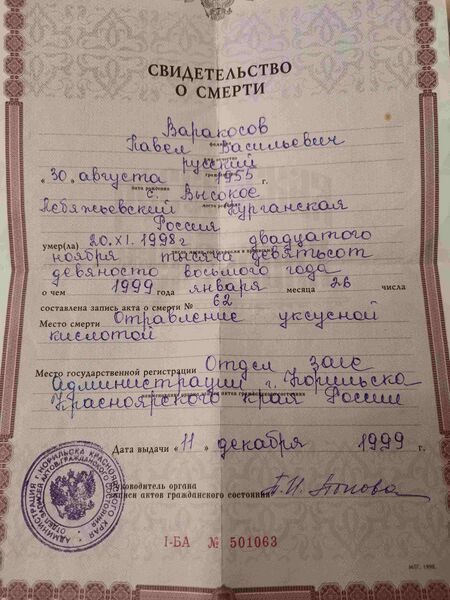 СВИДЕТЕЛЬСТВО
О СМЕРТИ
Варакосов
фамилия
Павел Васильевич
имя, отчество
русский
"30" августа 1955 г.
дата рождения
с. Высокое
Лебяжьевский Курганская
место рождения
Россия
умер(ла) 20.XI.1998г двадцатого
ноября тысяча девятьсот
девяносто восьмого года
о чем 1999 года января месяца 26 числа
составлена запись акта о смерти № 62
Место смерти Отравление уксусной
кислотой
Место государственной регистрации Отдел ЗАГС
Администрации г. Норильска
Красноярского края России
Дата выдачи "11" декабря 1999 г.
Руководитель органа
записи актов гражданского состояния
АДМИНИСТРАЦИЯ Г. НОРИЛЬСКА КРАСНОЯРСКОГО КРАЯ
ОТДЕЛ ЗАПИСИ АКТОВ ГРАЖДАНСКОГО СОСТОЯНИЯ
I-БА № 501063
МПГ. 1998.